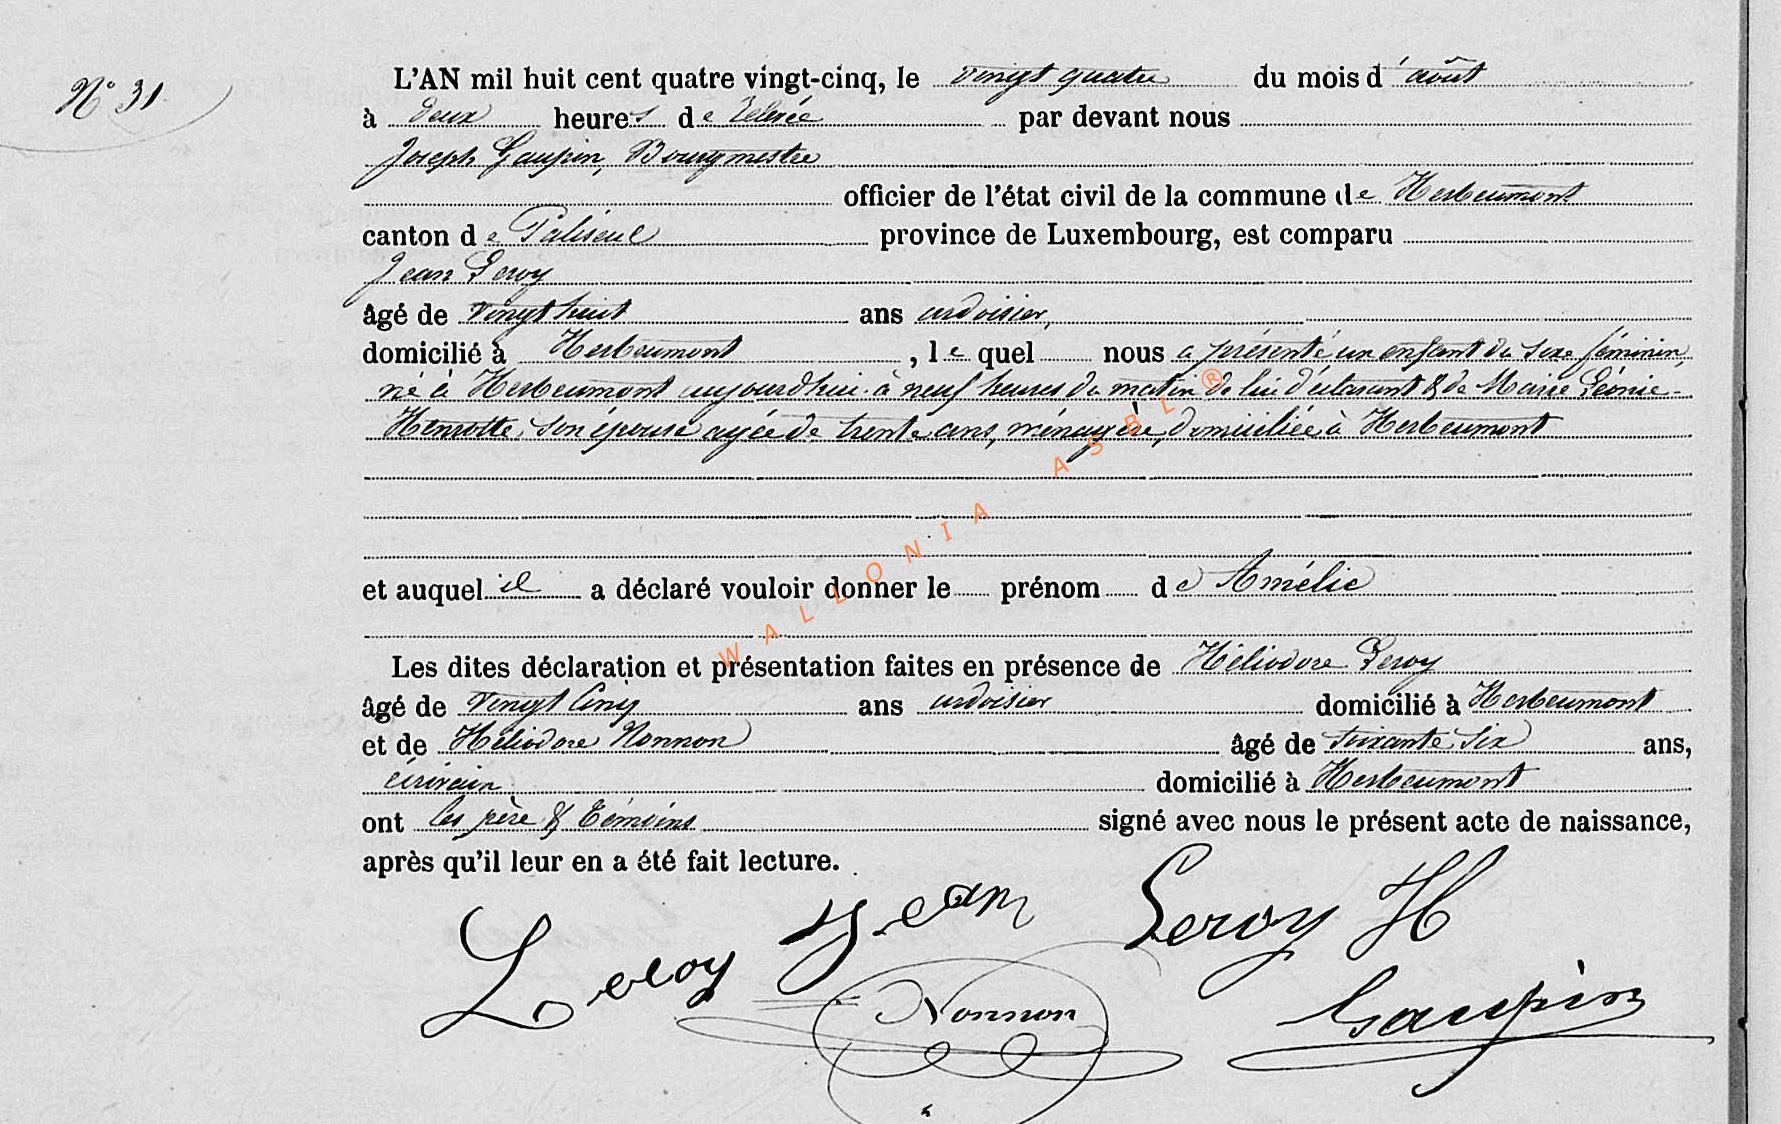 N° 31
L'AN mil huit cent quatre vingt-cinq, le vingt quatre du mois d'août
à deux heures de relevée par devant nous
Joseph Gaupin, Bourgmestre
officier de l'état civil de la commune de Herbeumont
canton de Paliseul province de Luxembourg, est comparu
Jean Leroy
âgé de vingt huit ans ardoisier,
domicilié à Herbeumont, le quel nous a présenté un enfant du sexe féminin,
né à Herbeumont aujourdhui à neuf heures du matin de lui déclarant & de Marie Léonie
Henrotte, son épouse agée de trente ans, ménagère, domiciliée à Herbeumont
et auquel il a déclaré vouloir donner le prénom de Amélie
Les dites déclaration et présentation faites en présence de Héliodore Leroy
âgé de vingt cinq ans ardoisier domicilié à Herbeumont
et de Héliodore Nonnon âgé de soixante six ans,
écrivain domicilié à Herbeumont
ont les père & témoins signé avec nous le présent acte de naissance,
après qu'il leur en a été fait lecture.
Leroy Jean Leroy H
Nonnon Gaupin
WALLONIA ASBL ®